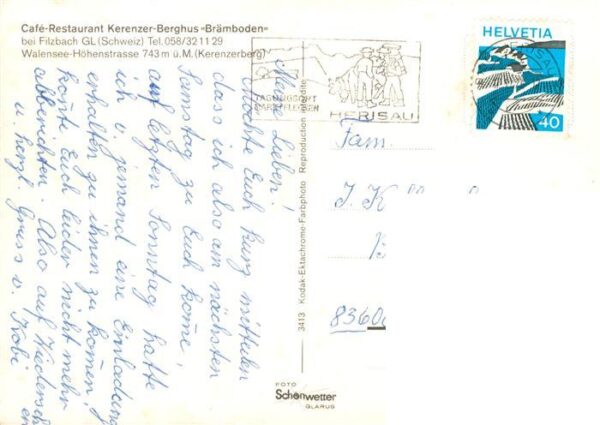 Café-Restaurant Kerenzer-Berghus «Brämboden»
bei Filzbach GL (Schweiz) Tel. 058/32 11 29
Walensee-Höhenstrasse 743 m ü. M. (Kerenzerberg)
Meine Lieben!
Möchte Euch kurz mitteilen
dass ich also am nächsten
Samstag zu Euch komme,
am letzten Sonntag hatte
ich v. jemand eine Einladung
erhalten zu ihnen zu kommen,
konnte Euch leider nicht mehr
abberichten. Also auf Wiederseh
u. herzl. Gruss v. Kobi
3413 Kodak-Ektachrome-Farbphoto Reproduction interdite
FOTO
Schönwetter
GLARUS
HERISAU
HELVETIA
40
Fam.
J. K
8360